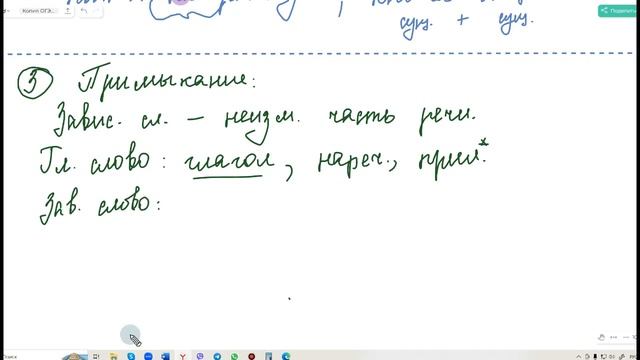 Копия ОГЭ...
Поделиться
сущ. + сущ.
3 Примыкание:
Завис. сл. – неизм. часть речи.
Гл. слово: глагол, нареч., прил.*
Зав. слово:
Поиск